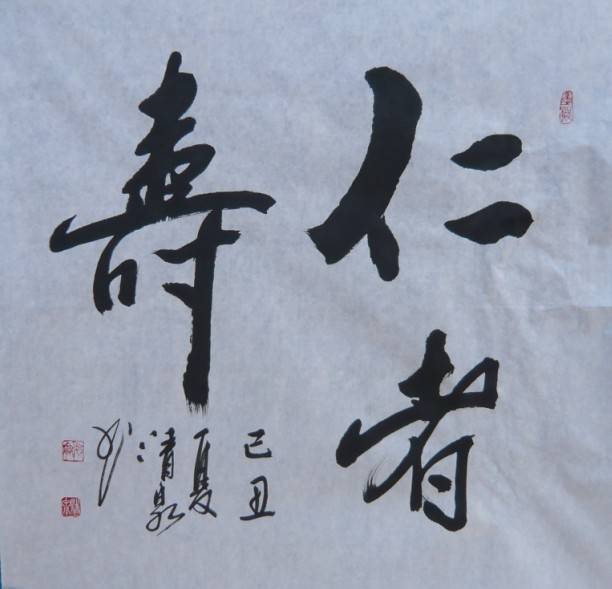 仁者
壽
己丑
夏
清泉